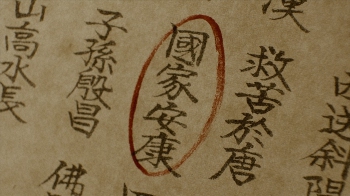 漢
因送斜陽
救苦於唐
國家安康
子孫殷昌
佛
山高水長